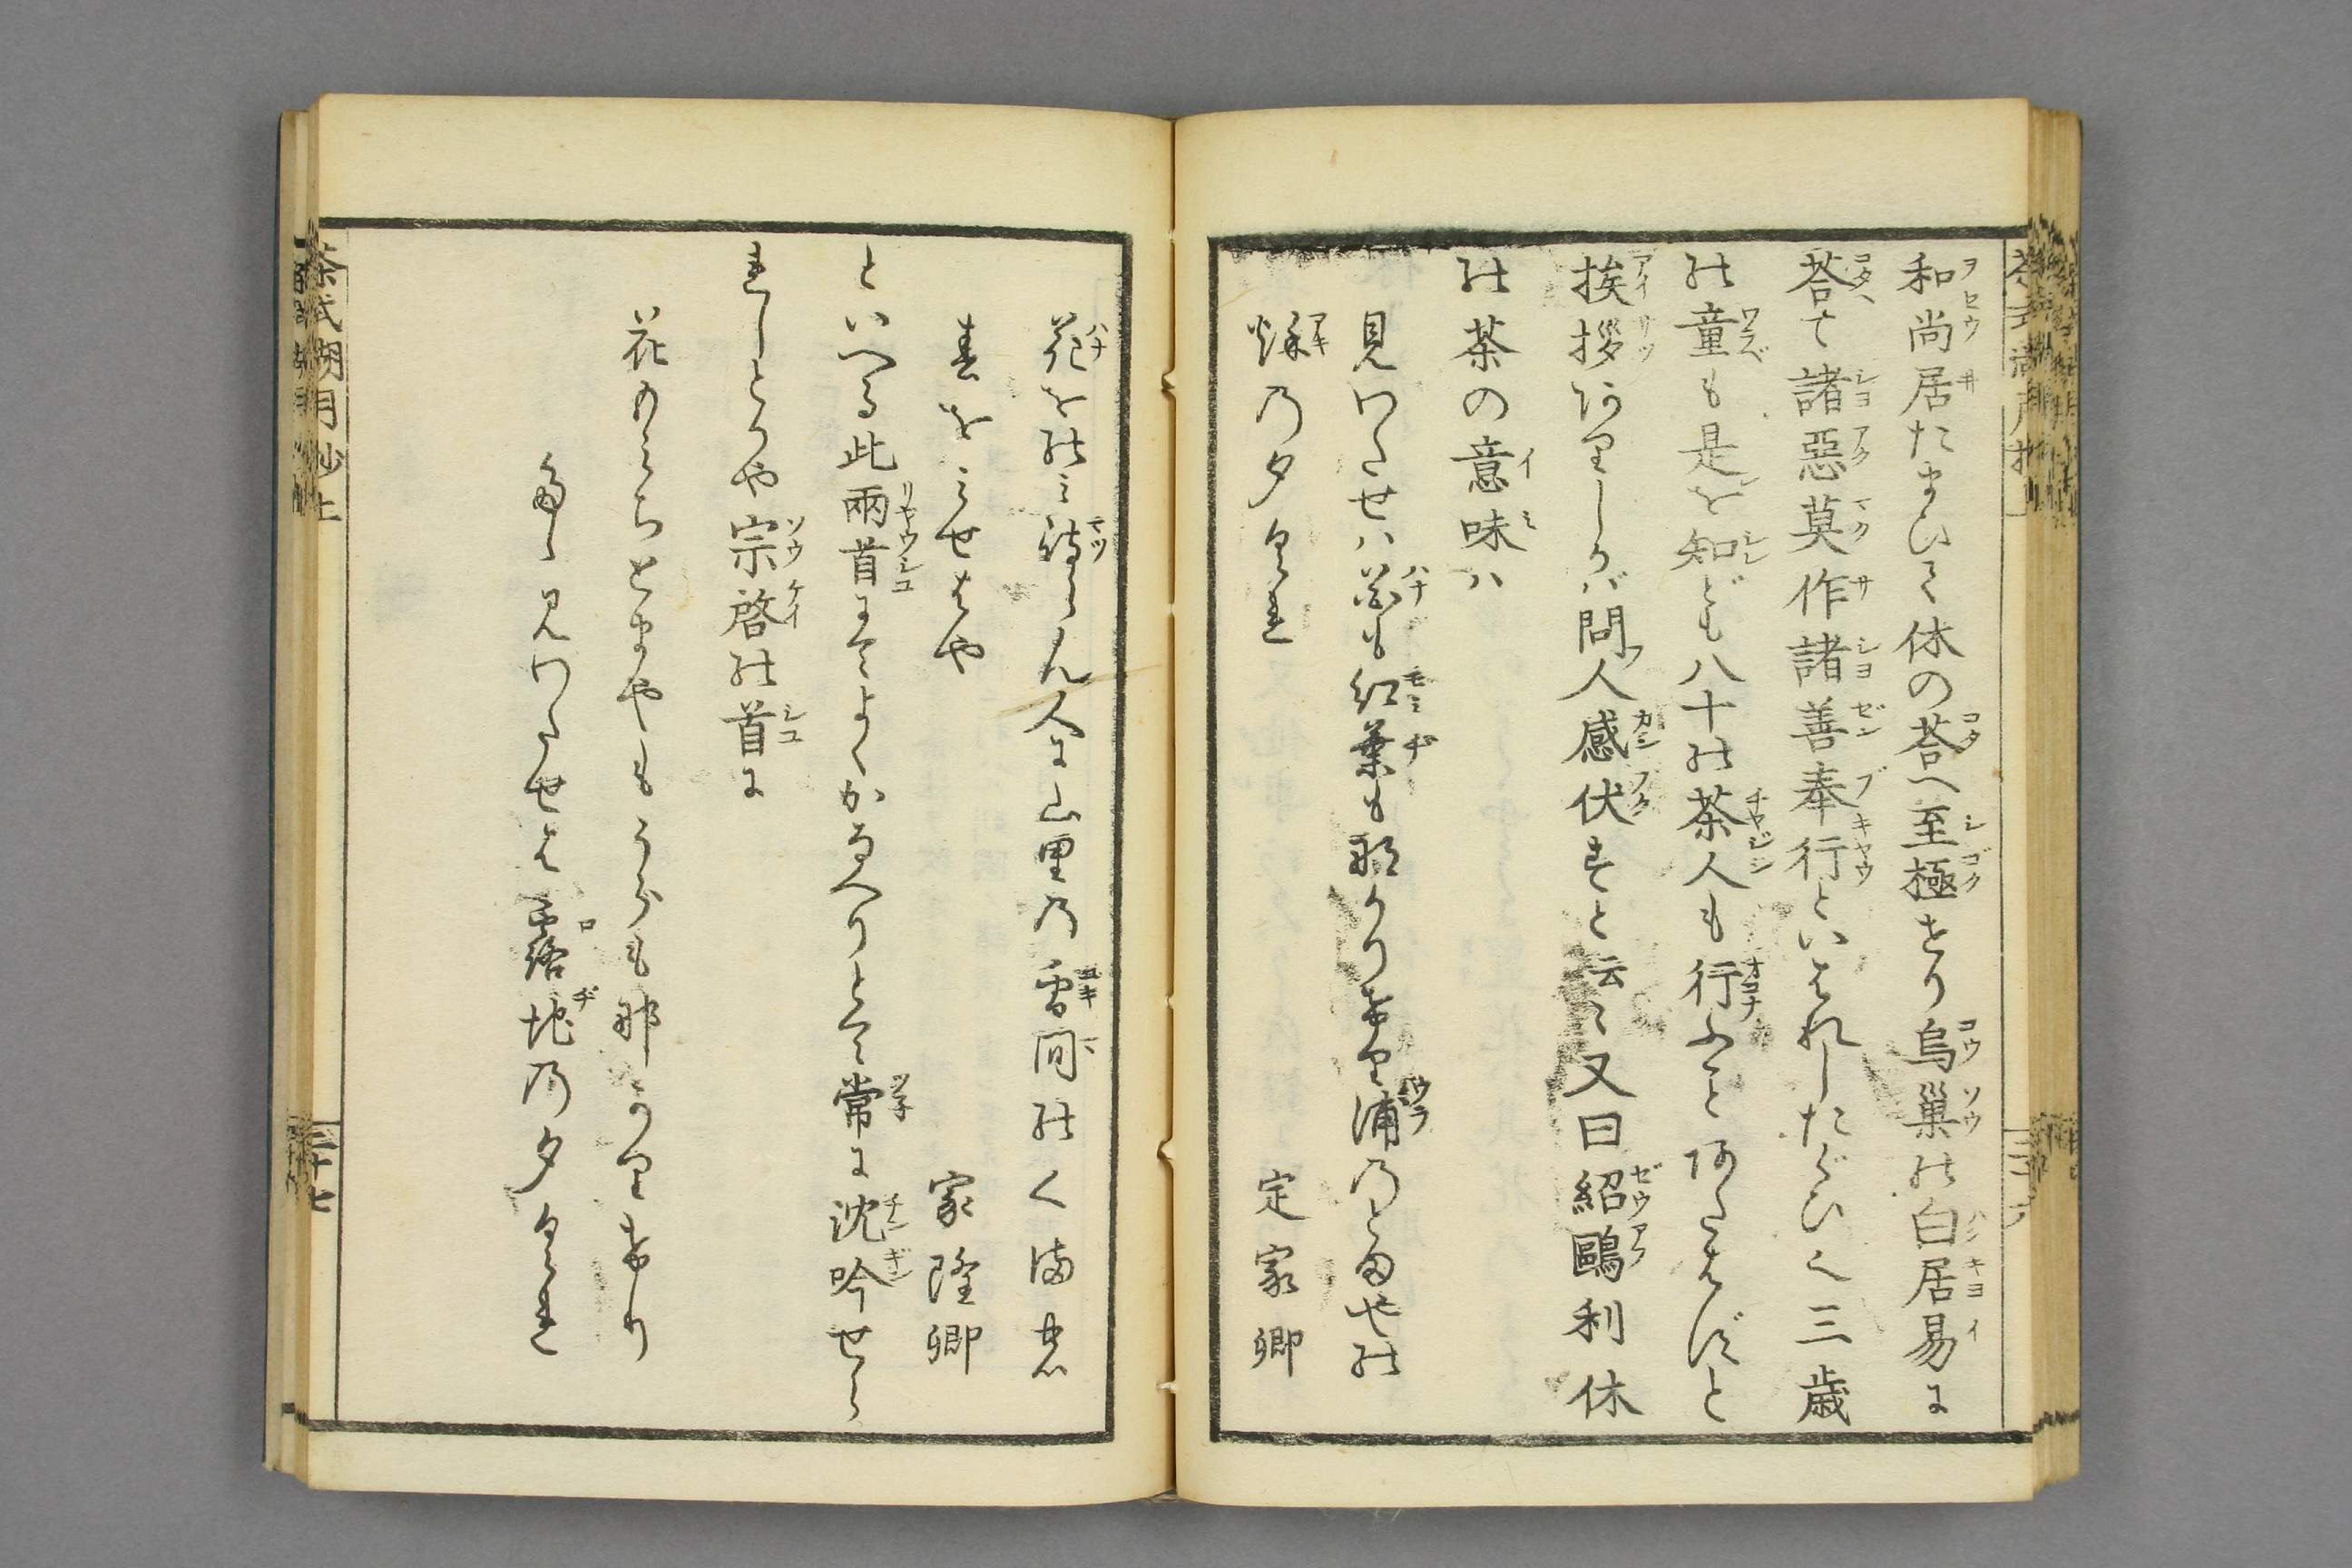 和尚居たまひて休の荅へ至極せり烏巣の白居易に
荅て諸惡莫作諸善奉行といはれしたぐひ也三歳
の童も是を知ども八十の茶人も行ふことあたはずと
挨拶ありしかバ問人感伏すと云々又曰紹鷗利休
の茶の意味ハ
見わたせハ花も紅葉も那かりけり浦乃とまやの
烁乃夕くれ
定家卿
花を能ミ待らん人に山里乃雪間の
春を見せはや
家隆卿
といへる此兩首にてよくかなへりとて常に沈吟せら
れしとかや宗啓の首に
花のミちとまやもうらも那かりけり
たゝ見わたせは露地乃夕くれ
茶式湖月抄上
三十七